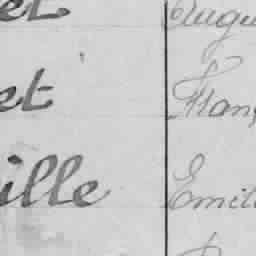 et Augu
et Fran
ille Emil